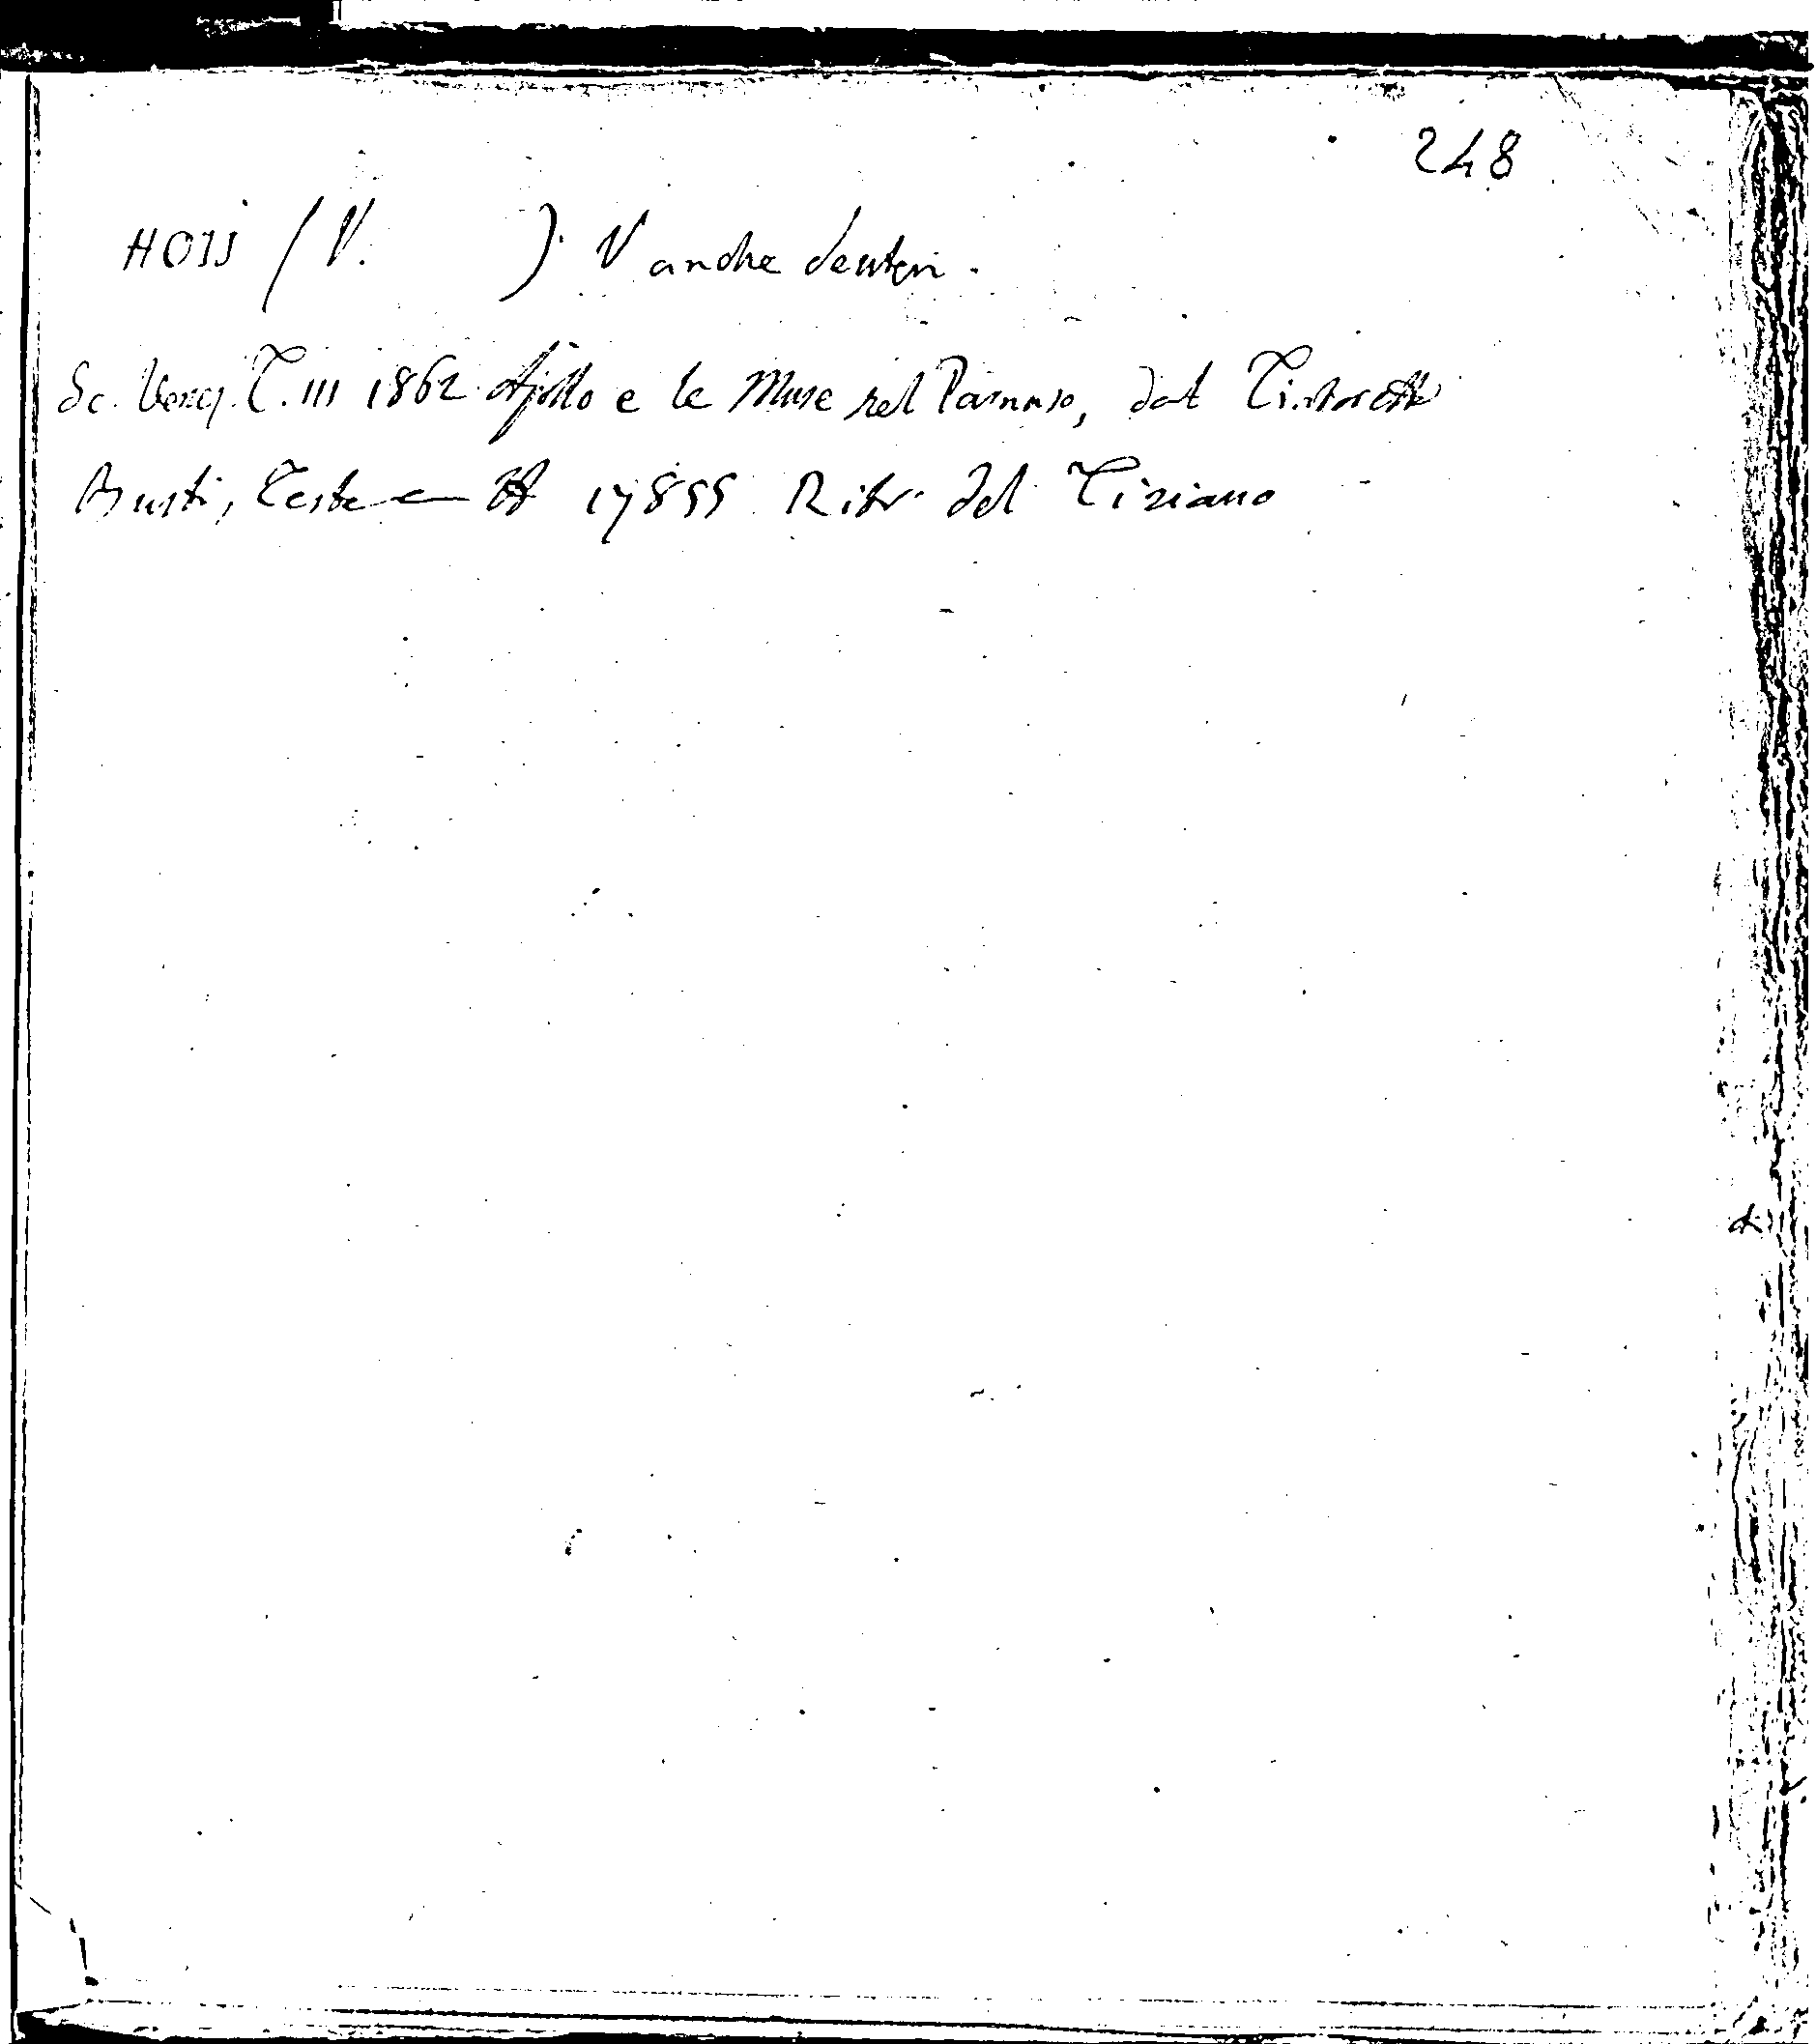 248
HOIJ (V. ) V anche Deuten.
Sc. Venez. T. III 1862 Apollo e le Muse nel Parnaso, dal Tintoretto
Busti, Teste e 17855 Ritr. del Tiziano